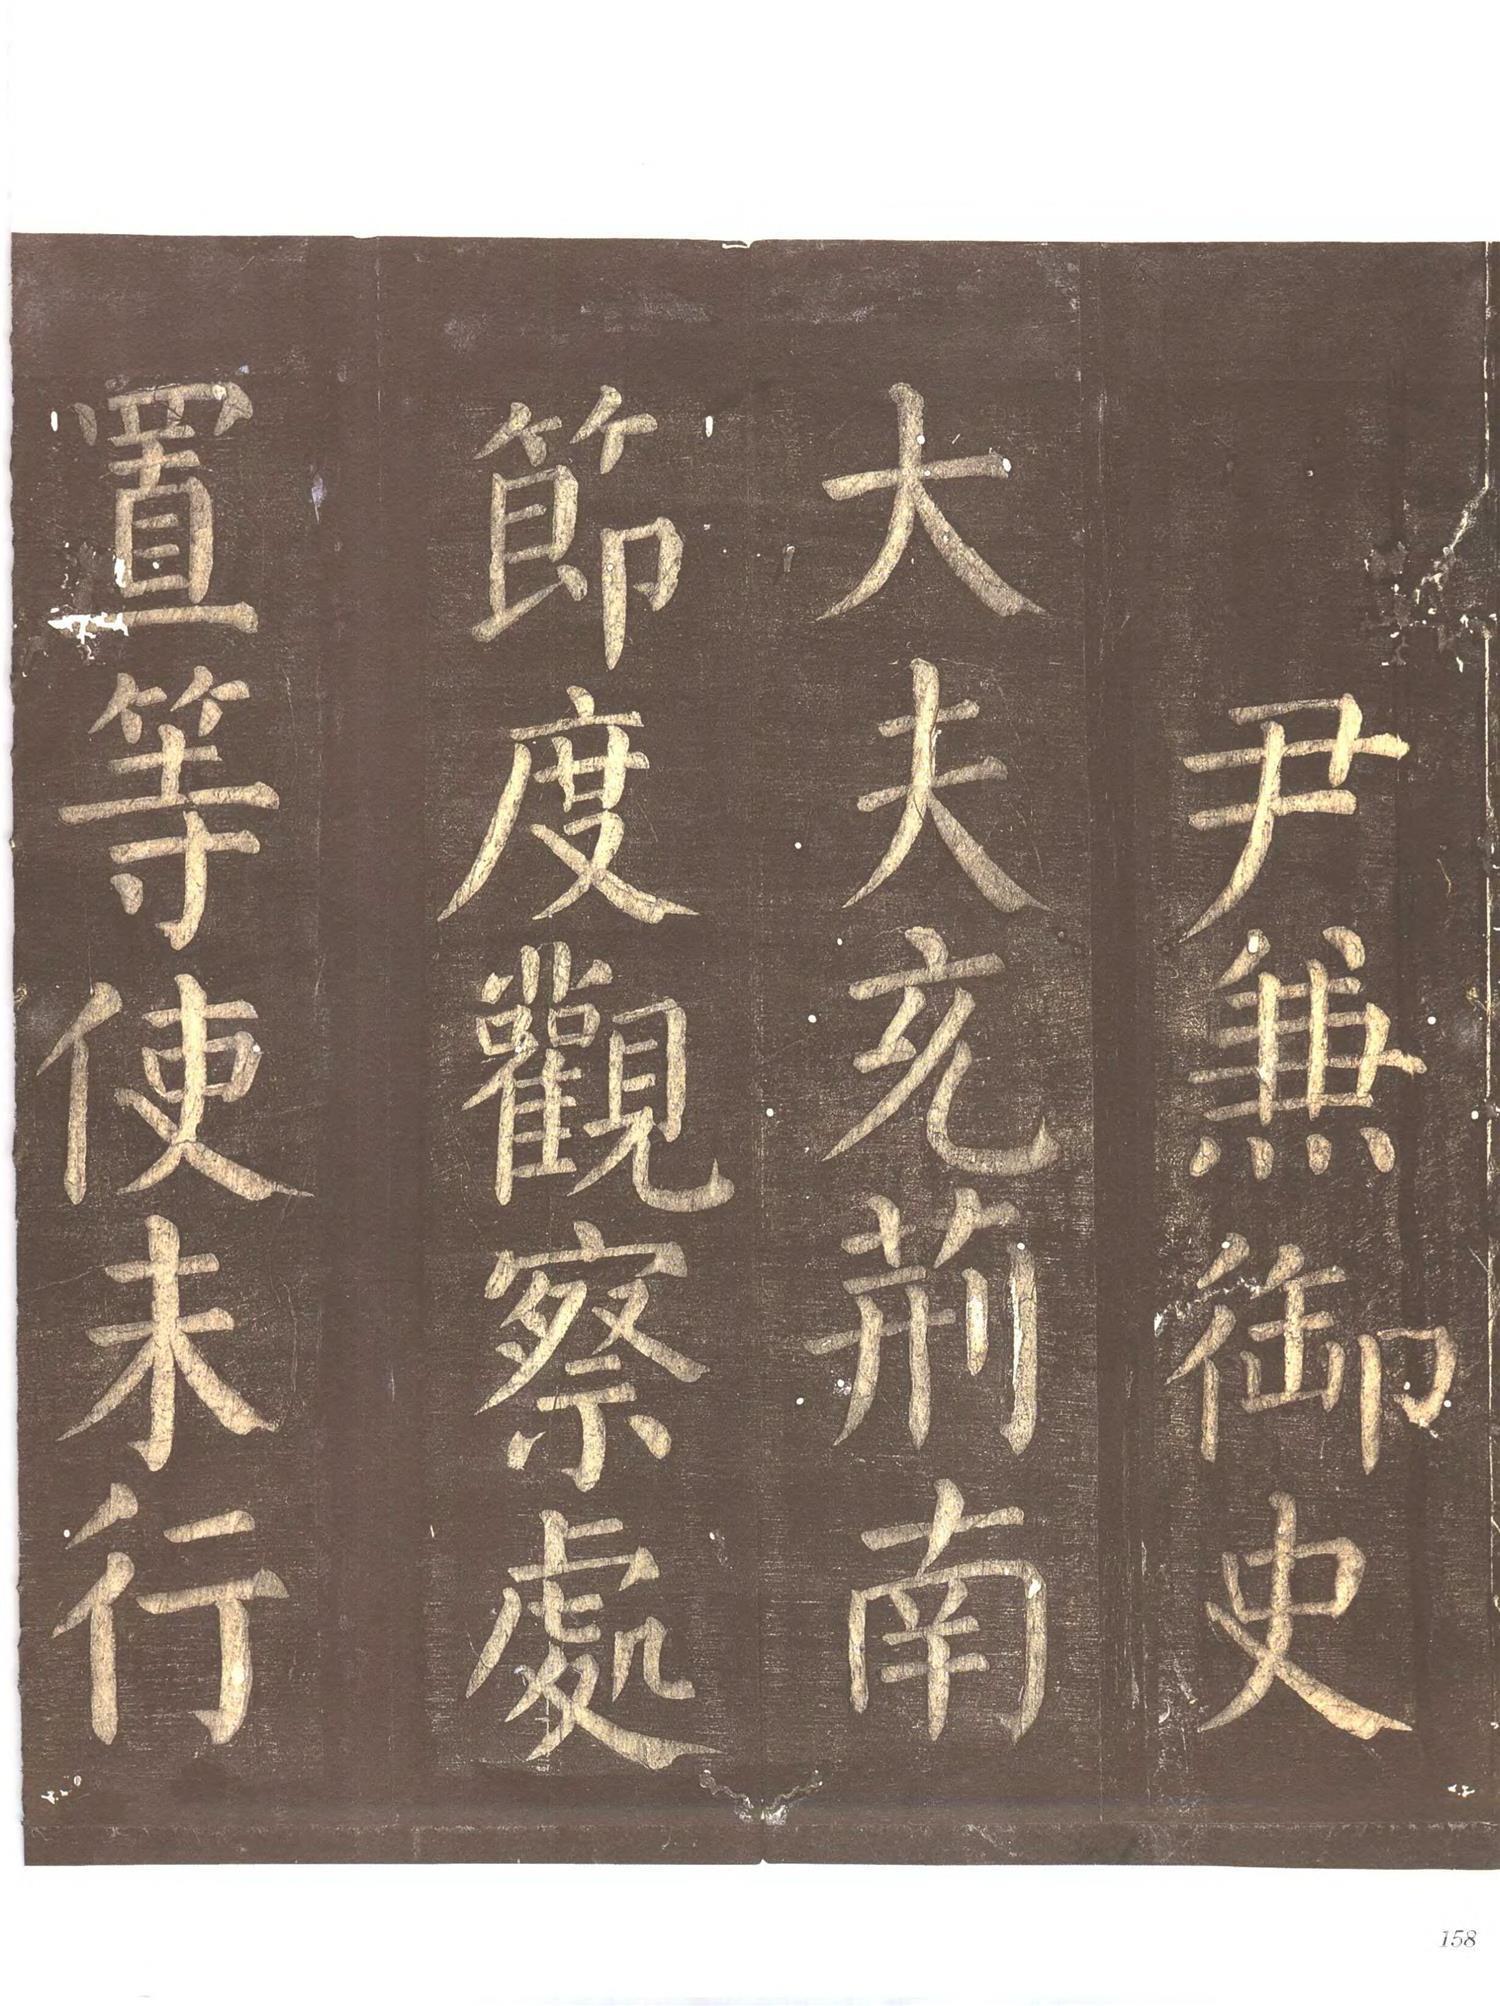 尹兼御史
大夫充荆南
節度觀察處
置等使未行
158